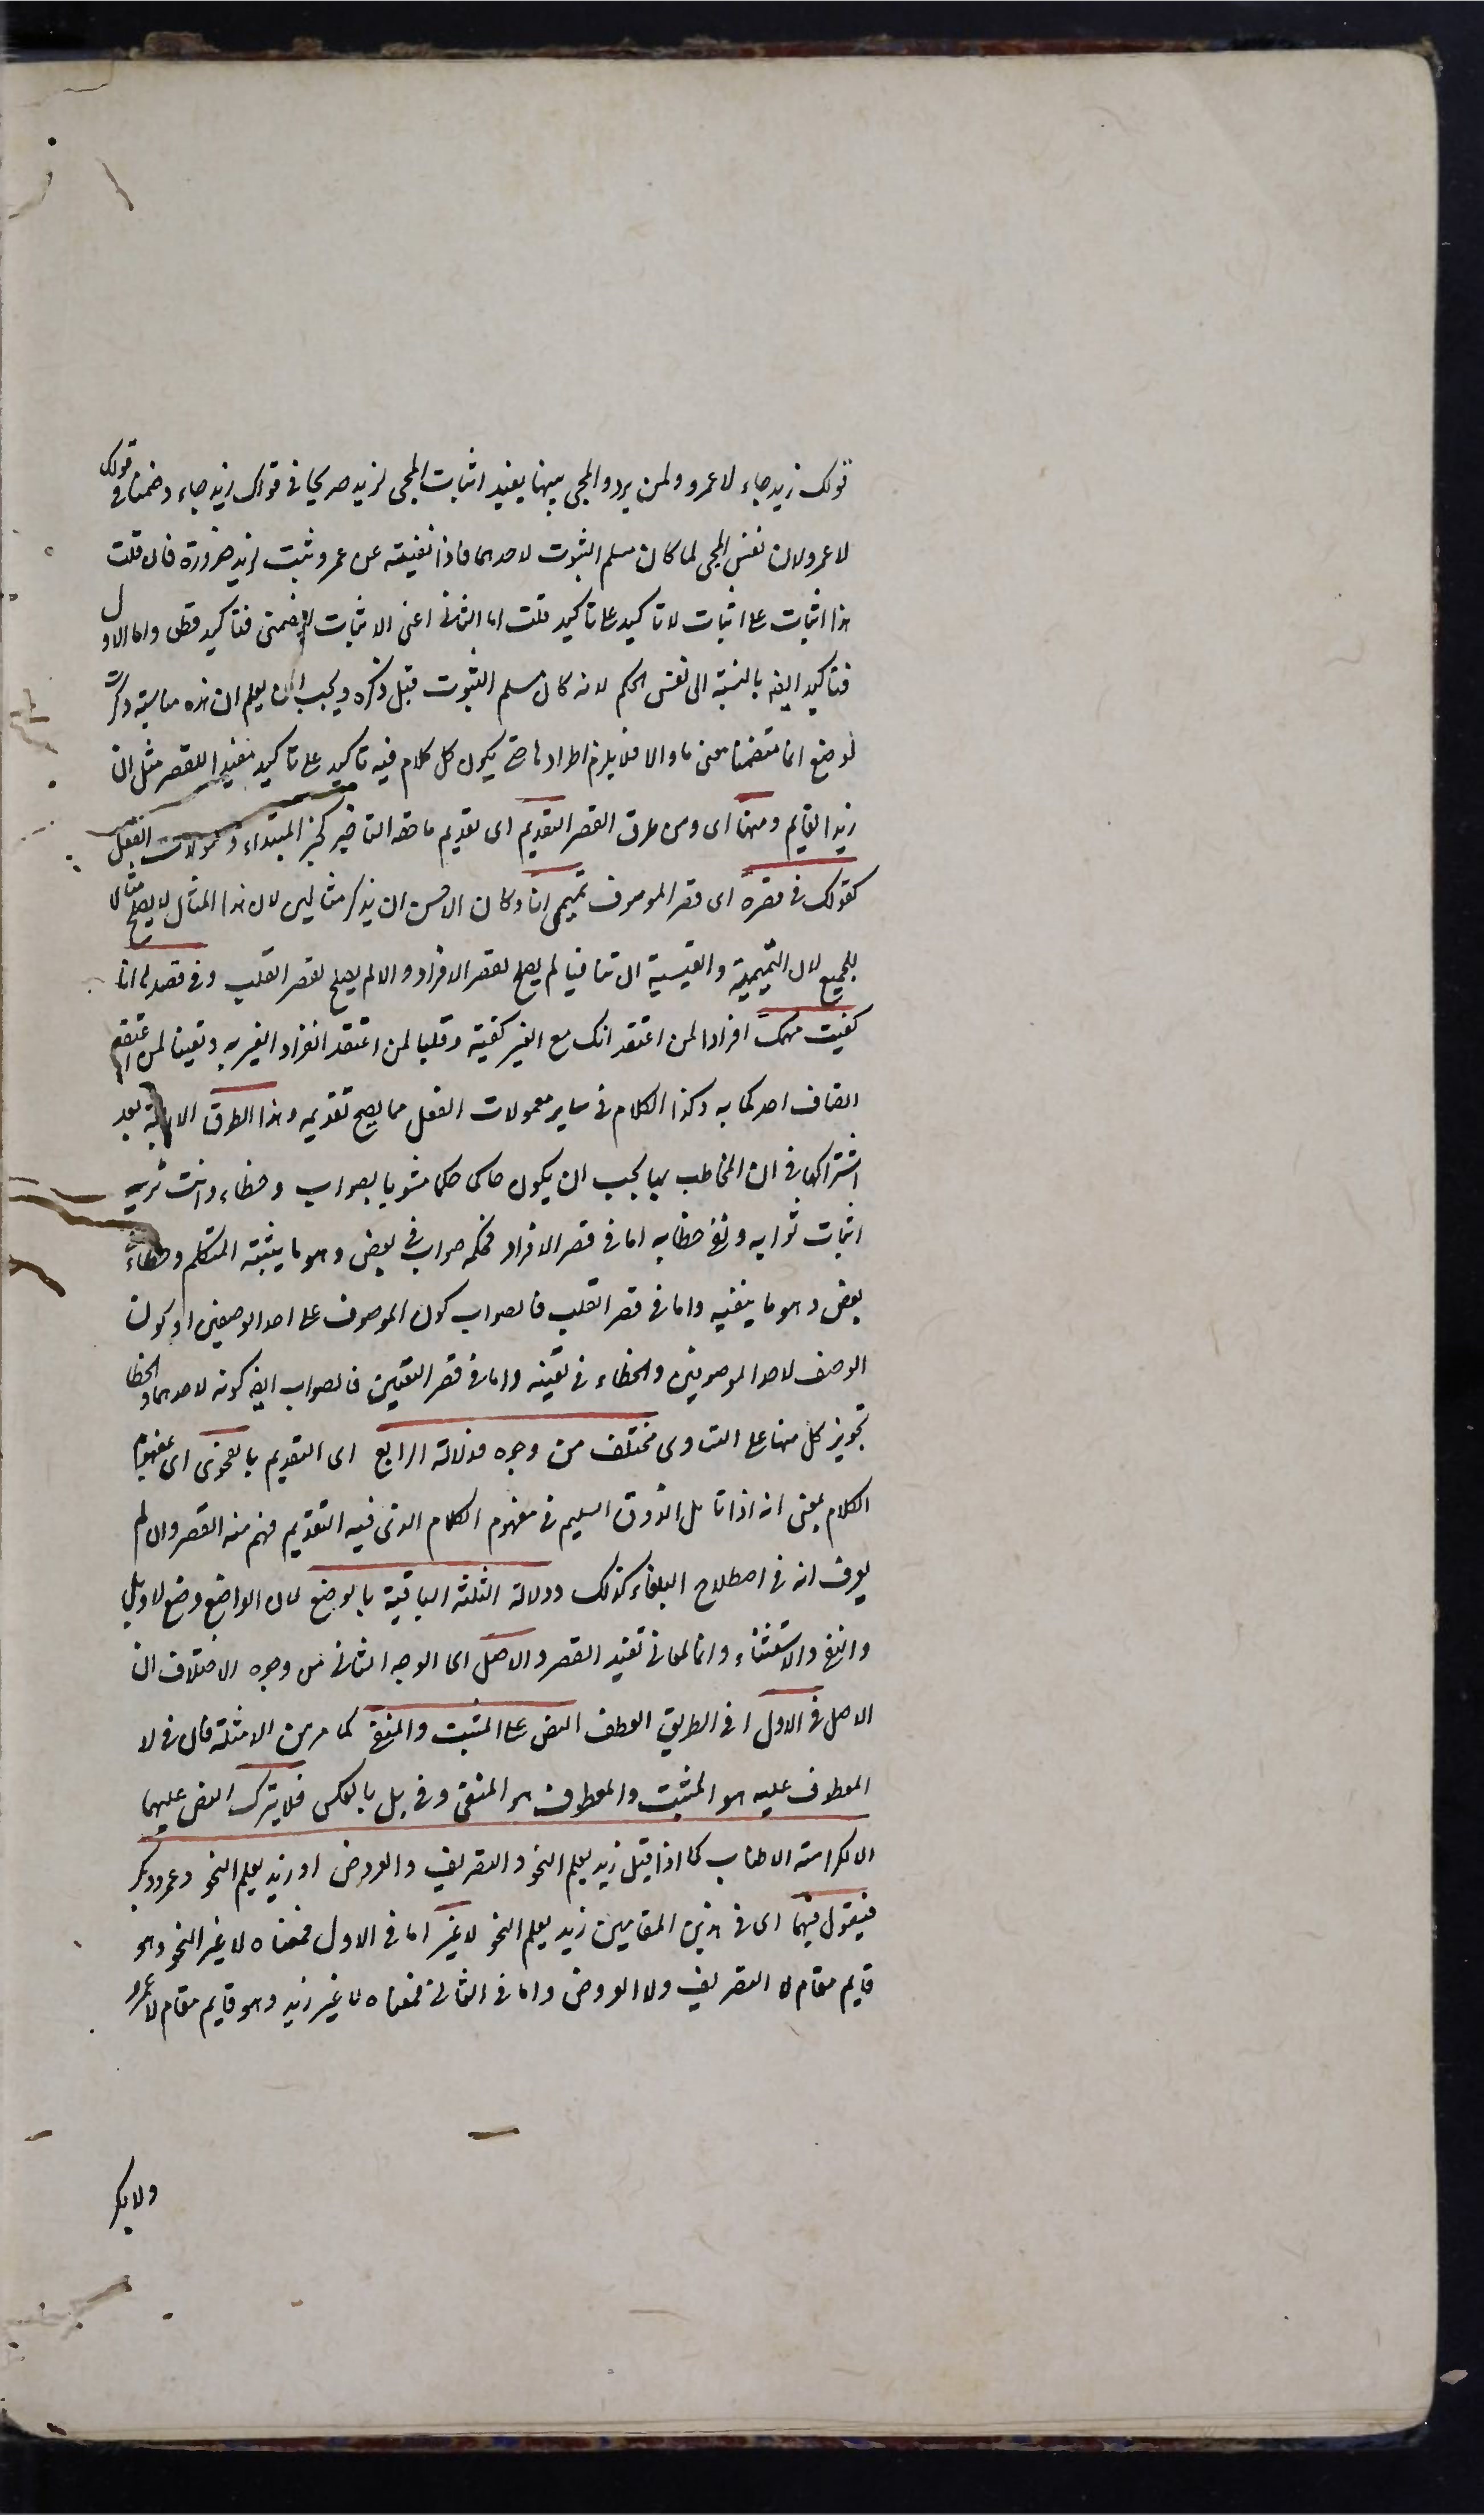 قولك زيد جاء لا عمرو ولمن يردد المجى بينهما يفيد اثبات المجى لزيد صريحا فى قولك زيد جاء وضمنا فى قولك
لا عمرو لان نفس المجى لما كان مسلم الثبوت لاحدهما فاذا نفيته عن عمرو ثبت لزيد ضرورة فان قلت
هذا اثبات على اثبات لا تاكيد على تاكيد قلت اما الثانى اعنى الاثبات الضمنى فتاكيد قطعا واما الاول
فتاكيد ايضا بالنسبة الى نفس الحكم لانه كان مسلم الثبوت قبل ذكره ويجب ان يعلم ان هذه مناسبة ذكرت
لوضع انما متضمنا معنى ما والا فلا يلزم اطرادها حتى يكون كل كلام فيه تاكيد على تاكيد مفيدا للقصر مثل ان
زيدا لقايم ومنها اى ومن طرق القصر التقديم اى تقديم ما حقه التاخير كخبر المبتداء ومعمولات الفعل
كقولك فى قصره اى قصر الموصوف تميمى انا وكان الاحسن ان يذكر مثالين لان هذا المثال لا يصلح مثالا
للجميع لان التميمية والقيسية ان تنافيا لم يصلح لقصر الافراد والا لم يصلح لقصر القلب وفى قصرها انا
كفيت مهمك افرادا لمن اعتقد انك مع الغير كفيته وقلبا لمن اعتقد انفراد الغير به وتعيينا لمن اعتقد
اتصاف احدكما به وكذا الكلام فى ساير معمولات الفعل مما يصح تقديمه وهذا الطرق الاربعة بعد
اشتراكها فى ان المخاطب بها يجب ان يكون حاكما حكما مشوبا بصواب وخطاء وانت تريد
اثبات ثوابه ونفى خطابه اما فى قصر الافراد فحكمه صواب فى بعض وهو ما يثبته المتكلم وخطاء فى
بعض وهو ما ينفيه واما فى قصر القلب فالصواب كون الموصوف على احد الوصفين او كون
الوصف لاحد الموصوفين والخطاء فى تعيينه واما فى قصر التعيين فالصواب ايضا كونه لاحدهما والخطا
تجويز كل منهما على التساوى مختلف من وجوه فدلالة الرابع اى التقديم بالفحوى اى بمفهوم
الكلام بمعنى انه اذا تامل الذوق السليم فى مفهوم الكلام الذى فيه التقديم فهم منه القصر وان لم
يعرف انه فى اصطلاح البلغاء كذلك ودلالة الثلثة الباقية بالوضع لان الواضع وضع لا وبل
والنفى والاستثناء وانما لمعان تفيد القصر والاصل اى الوجه الثانى من وجوه الاختلاف ان
الاصل فى الاول اى فى الطريق العطف النص على المثبت والمنفى كما مر من الامثلة فان فى لا
المعطوف عليه هو المثبت والمعطوف هو المنفى وفى بل بالعكس فلا يترك النص عليهما
الا لكراهته الاطناب كما اذا قيل زيد يعلم النحو والتصريف والعروض او زيد يعلم النحو وعمرو وبكر
فيقول فيهما اى فى هذين المقامين زيد يعلم النحو لا غير اما فى الاول فمعناه لا غير النحو وهو
قايم مقام لا التصريف ولا العروض واما فى الثانى فمعناه لا غير زيد وهو قايم مقام لا عمرو
ولا بكر